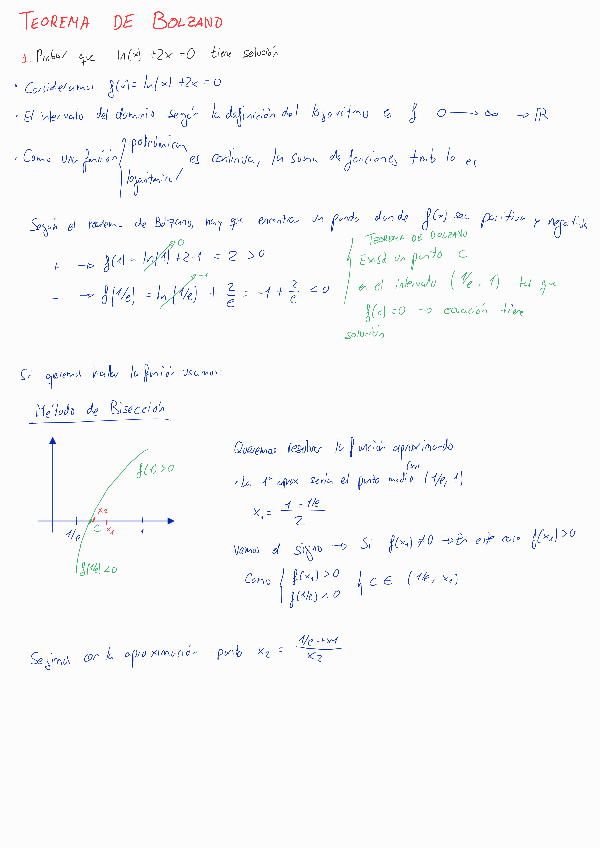 TEOREMA DE BOLZANO
1. Probar que ln(x) + 2x = 0 tiene solución
· Consideramos f(x) = ln(x) + 2x = 0
· El intervalo del dominio según la definición del logaritmo es f 0 → ∞ → ℝ
· Como una función { polinómica / logarítmica } es continua, la suma de funciones también lo es
Según el teorema de Bolzano, hay que encontrar un punto donde f(x) sea positiva y negativa
+ → f(1) = ln(1) + 2·1 = 2 > 0
0
- → f(1/e) = ln(1/e) + 2/e = -1 + 2/e < 0
-1
TEOREMA DE BOLZANO
Existe un punto c
en el intervalo (1/e, 1) tal que
f(c) = 0 → ecuación tiene
solución
Si queremos la función usamos:
Método de Bisección
f(1) > 0
x2
1/e C x1 1
f(1/e) < 0
Queremos resolver la función aproximando
· La 1ª aprox sería el punto medio (1/e, 1)
x1 = (1 - 1/e)/2
Vemos el signo → Si f(x1) ≠ 0 → En este caso f(x1) > 0
Como { f(x1) > 0
f(1/e) < 0 } c ∈ (1/e, x1)
Seguimos con la aproximación punto x2 = (1/e + x1)/x2